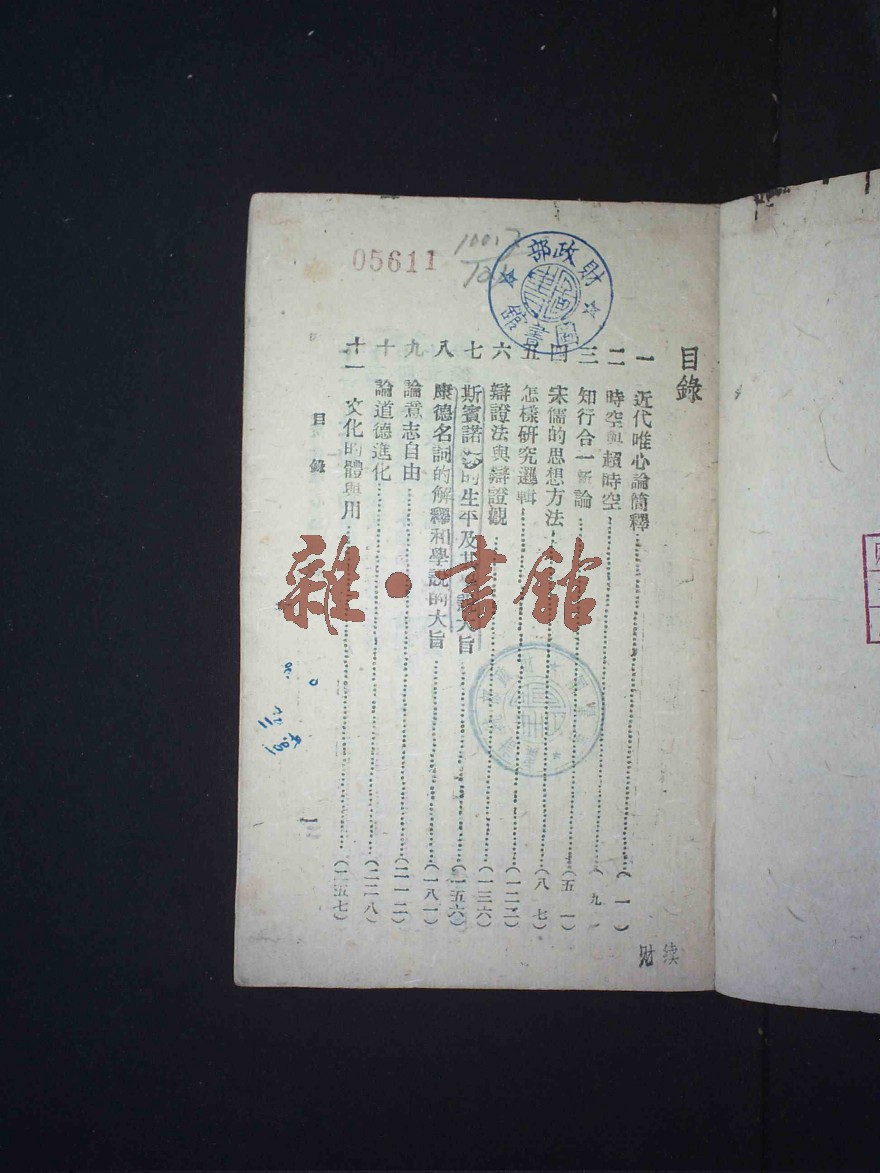 05611
財政部
圖書館
目錄
一 近代唯心論簡釋……(一)
二 時空與超時空……(九)
三 知行合一新論……(五一)
四 宋儒的思想方法……(八七)
五 怎樣研究邏輯……(一二二)
六 辯證法與辯證觀……(一三六)
七 斯賓諾莎的生平及其學說大旨……(一五六)
八 康德名詞的解釋和學說的大旨……(一八一)
九 論意志自由……(二一二)
十 論道德進化……(二二八)
十一 文化的體與用……(二五七)
目錄
一
雜·書館
财 续